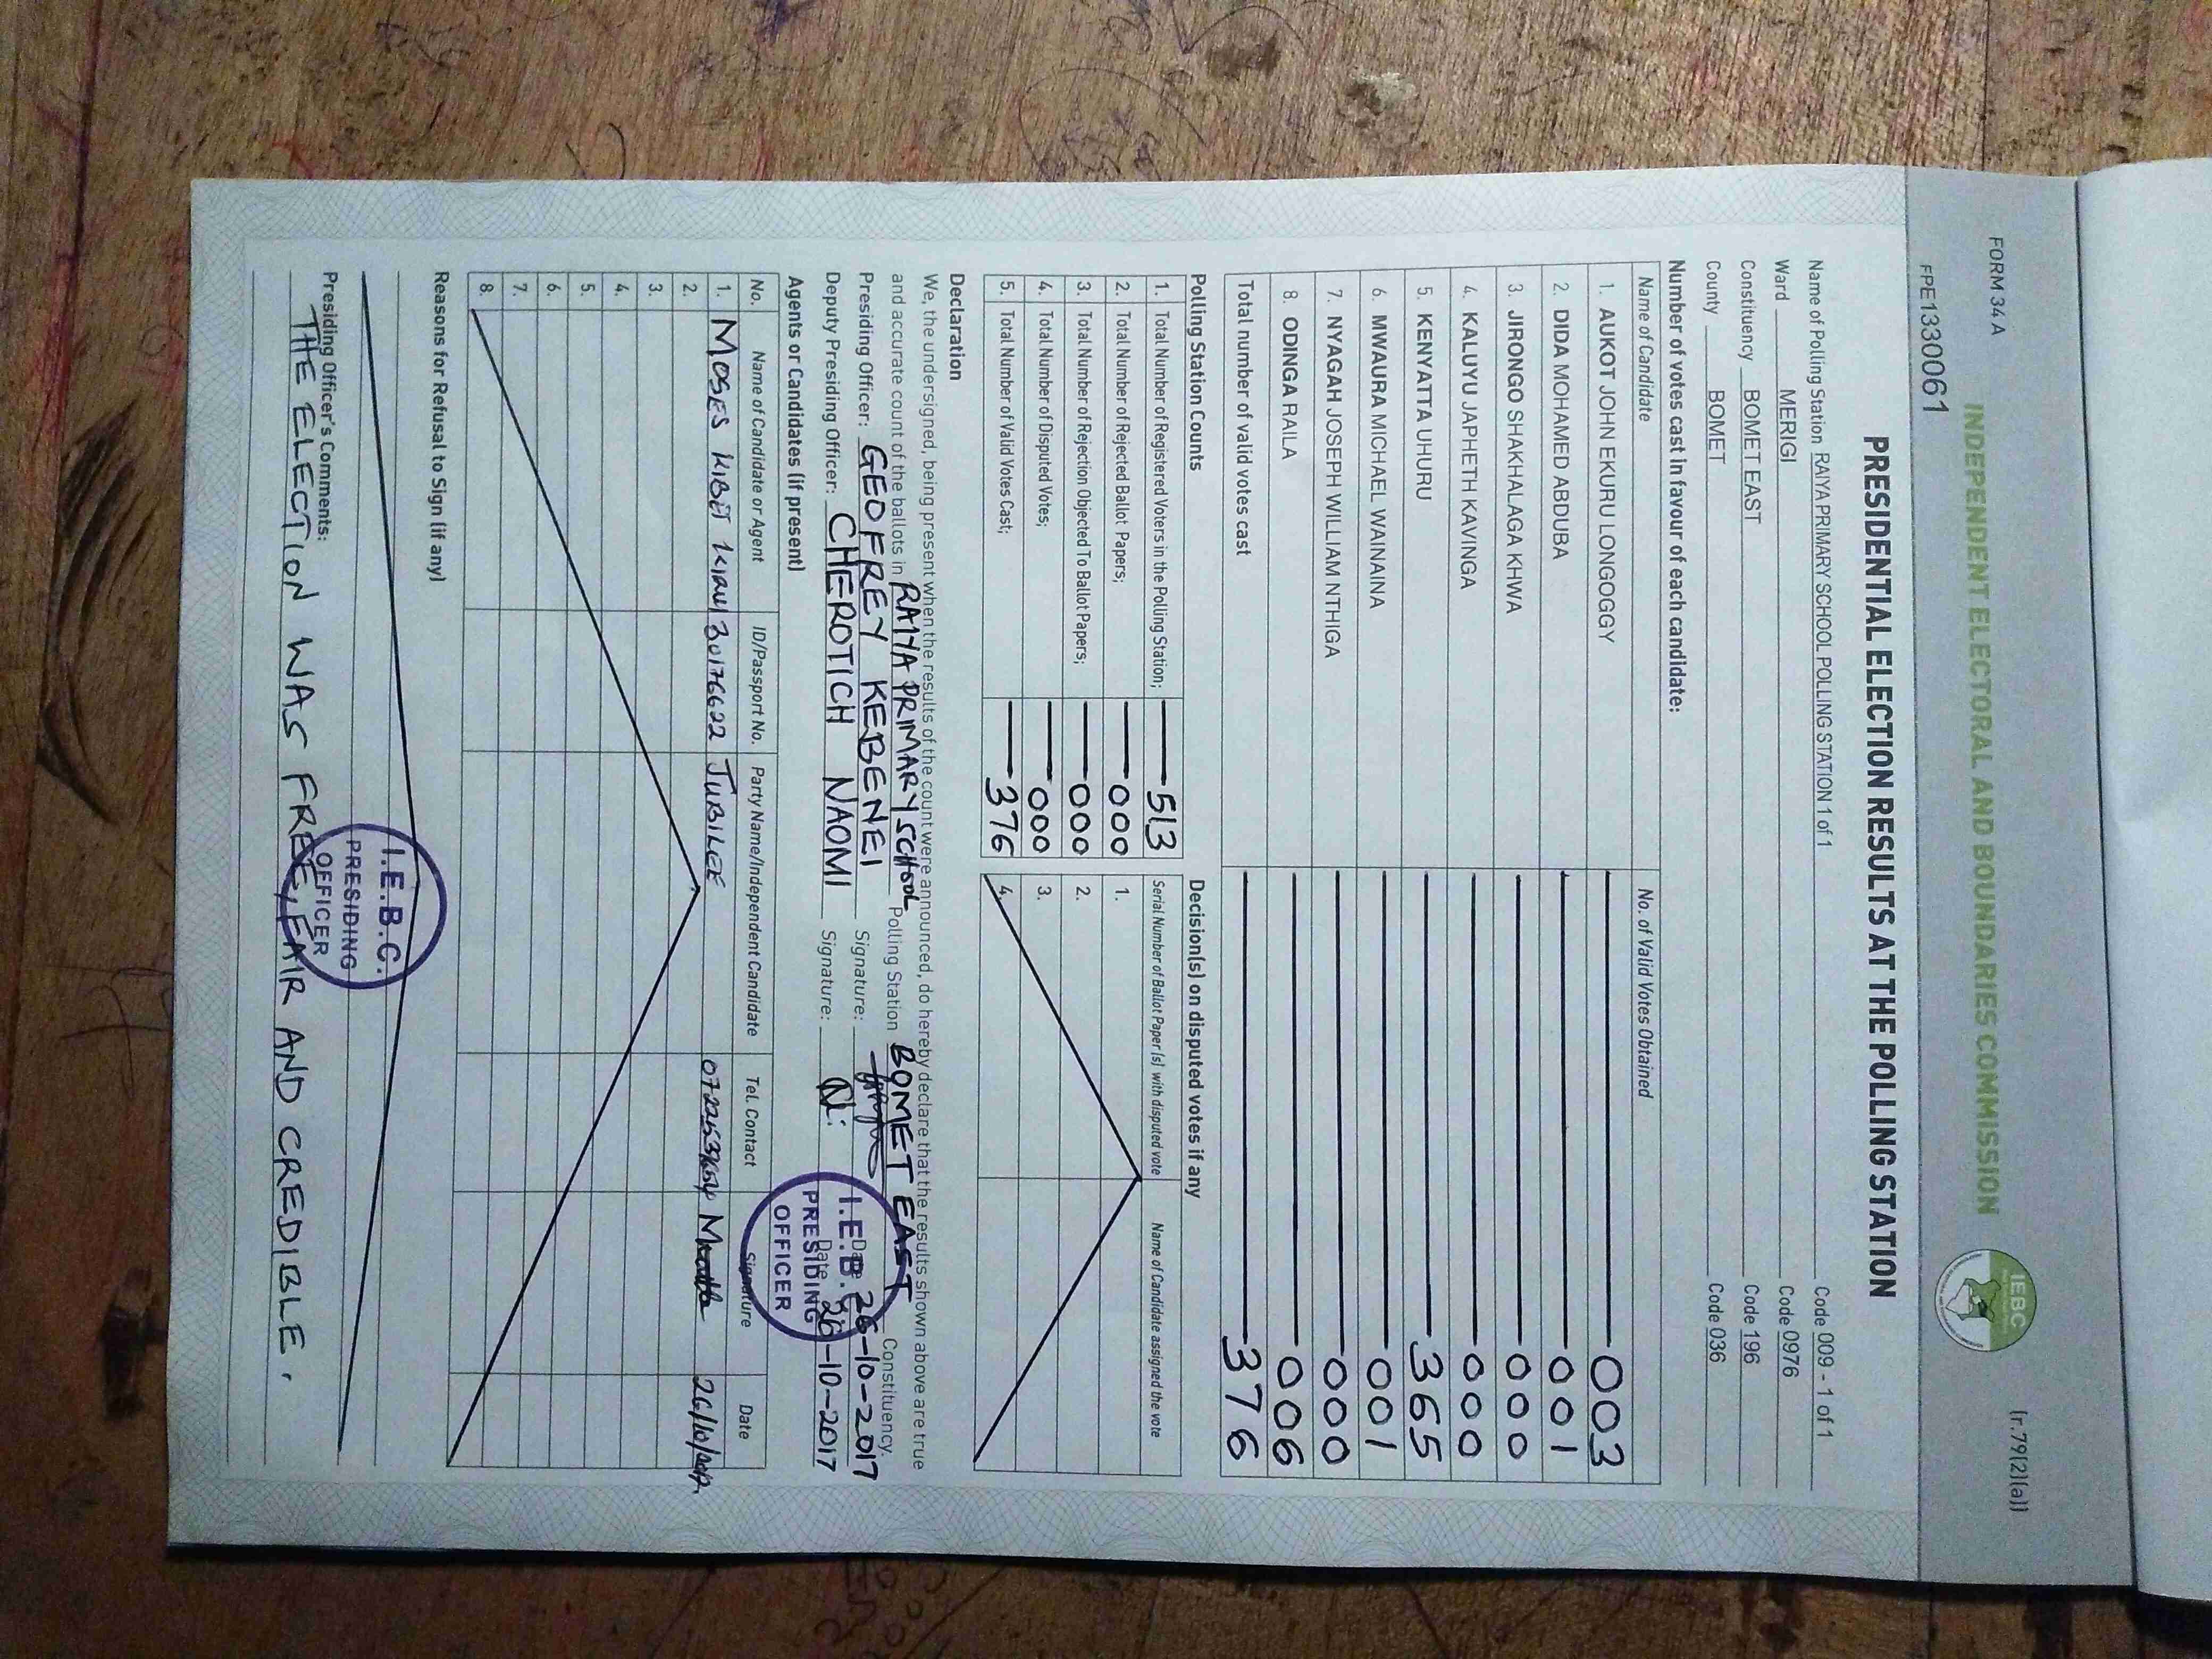 FORM 34 A
(r.79(2)(a))
INDEPENDENT ELECTORAL AND BOUNDARIES COMMISSION
IEBC
FPE1330061
PRESIDENTIAL ELECTION RESULTS AT THE POLLING STATION
Name of Polling Station RAIYA PRIMARY SCHOOL POLLING STATION 1 of 1 Code 009 - 1 of 1
Ward MERIGI Code 0976
Constituency BOMET EAST Code 196
County BOMET Code 036
Number of votes cast in favour of each candidate:
Name of Candidate No. of Valid Votes Obtained
1. AUKOT JOHN EKURU LONGOGGY 003
2. DIDA MOHAMED ABDUBA 001
3. JIRONGO SHAKHALAGA KHWA 000
4. KALUYU JAPHETH KAVINGA 000
5. KENYATTA UHURU 365
6. MWAURA MICHAEL WAINAINA 001
7. NYAGAH JOSEPH WILLIAM NTHIGA 000
8. ODINGA RAILA 006
Total number of valid votes cast 376
Polling Station Counts
1. Total Number of Registered Voters in the Polling Station; 513
2. Total Number of Rejected Ballot Papers; 000
3. Total Number of Rejection Objected To Ballot Papers; 000
4. Total Number of Disputed Votes; 000
5. Total Number of Valid Votes Cast; 376
Decision(s) on disputed votes if any
Serial Number of Ballot Paper (s) with disputed vote Name of Candidate assigned the vote
1.
2.
3.
4.
Declaration
We, the undersigned, being present when the results of the count were announced, do hereby declare that the results shown above are true
and accurate count of the ballots in RAIYA PRIMARY SCHOOL Polling Station BOMET EAST Constituency.
Presiding Officer: GEOFREY KEBENEI Signature: Date 26-10-2017
Deputy Presiding Officer: CHEROTICH NAOMI Signature: Date 26-10-2017
I.E.B.C.
PRESIDING
OFFICER
Agents or Candidates (if present)
No. Name of Candidate or Agent ID/Passport No. Party Name/Independent Candidate Tel. Contact Signature Date
1. MOSES KIBET 30176622 JUBILEE
2.
3.
4.
5.
6.
7.
8.
Reasons for Refusal to Sign (if any)
I.E.B.C.
PRESIDING
OFFICER
Presiding Officer's Comments:
THE ELECTION WAS FREE, FAIR AND CREDIBLE.